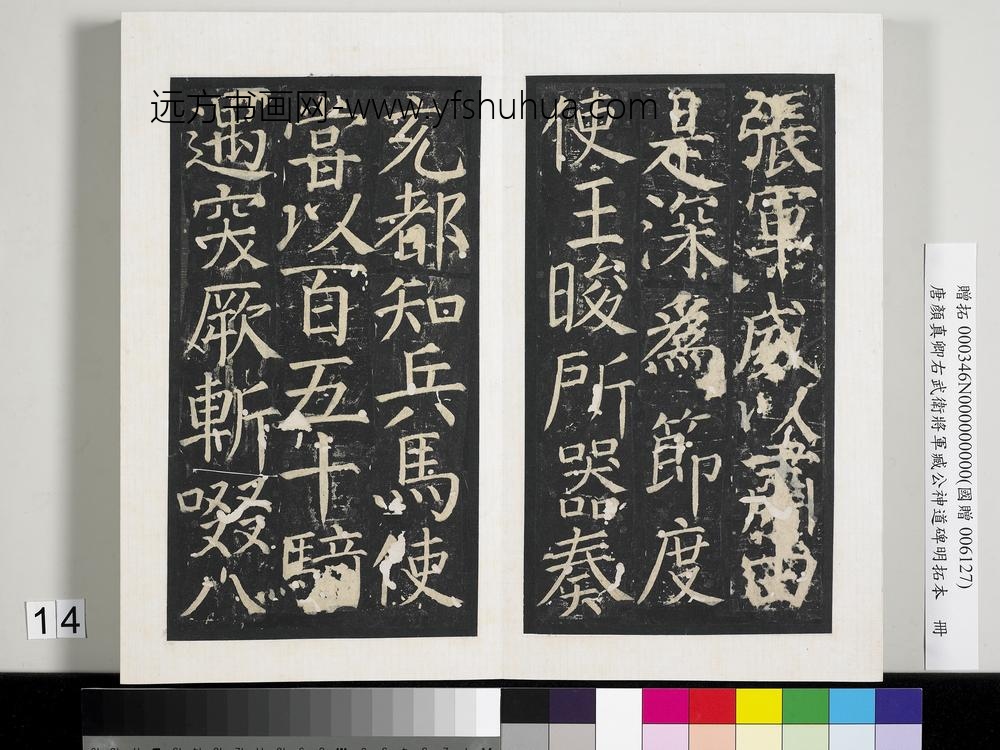 远方书画网-www.yfshuhua.com
張軍威以肅由
是深爲節度
使王晙所器奏
充都知兵馬使
嘗以百五十騎
遇突厥斬啜八
贈拓 000346N000000000(國贈 006127)
唐顏真卿右武衛將軍臧公神道碑明拓本 冊
14